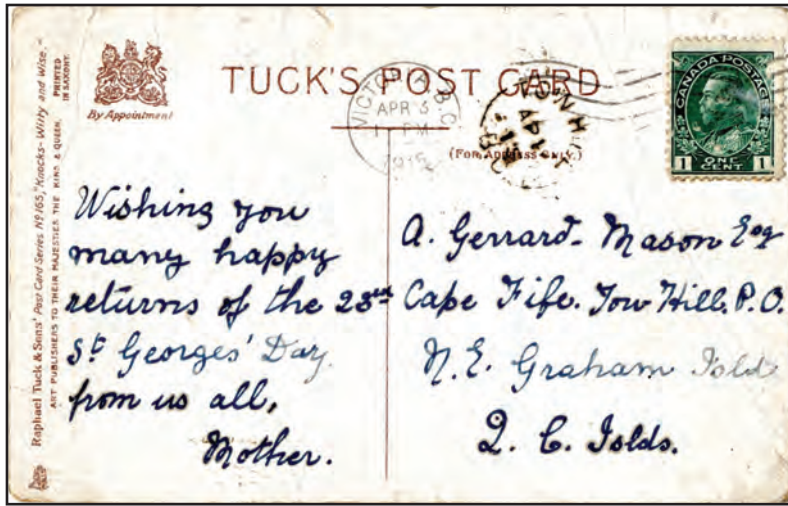 Raphael Tuck & Sons' Post Card Series Nº 165, "Knocks- Witty and Wise."
ART PUBLISHERS TO THEIR MAJESTIES THE KING & QUEEN.
PRINTED
IN SAXONY.
By Appointment
TUCK'S POST CARD
(FOR ADDRESS ONLY.)
VICTORIA B.C.
APR 3
PM
CANADA POSTAGE
1 ONE CENT 1
Wishing you
many happy
returns of the 23rd
St Georges' Day
from us all,
Mother.
A. Gerrard-Mason Esq
Cape Fife. Tow Hill. P.O.
N. E. Graham Isld
Q. C. Islds.